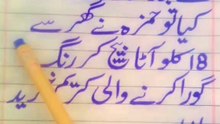 کیا تو حمزہ نے گھر سے
18 کلو آٹا بیچ کر رنگ
گورا کرنے والی کریم خرید